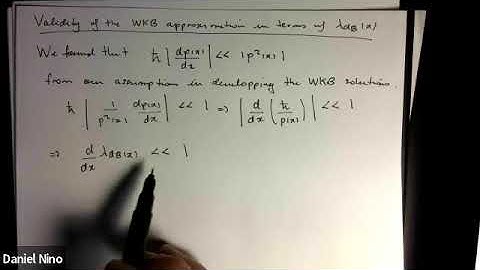 Validity of the WKB approximation in terms of λdB(x)
We found that ħ |dp(x)/dx| << |p²(x)|
from our assumption in developping the WKB solutions.
ħ | 1/p²(x) dp(x)/dx | << 1 ⇒ | d/dx (ħ/p(x)) | << 1
⇒ d/dx λdB(x) << 1
Daniel Nino